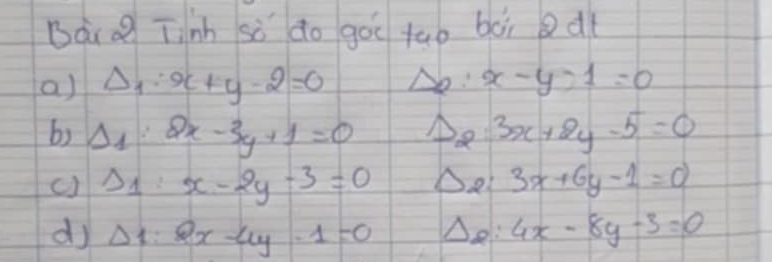 Bài 2 Tính số đo góc tạo bởi 2 đt
a) Δ1: x+y-2=0 Δ2: x-y-1=0
b) Δ1: 2x-3y+1=0 Δ2: 3x+2y-5=0
c) Δ1: x-2y-3=0 Δ2: 3x+6y-1=0
d) Δ1: 2x-4y-1=0 Δ2: 4x-8y-3=0